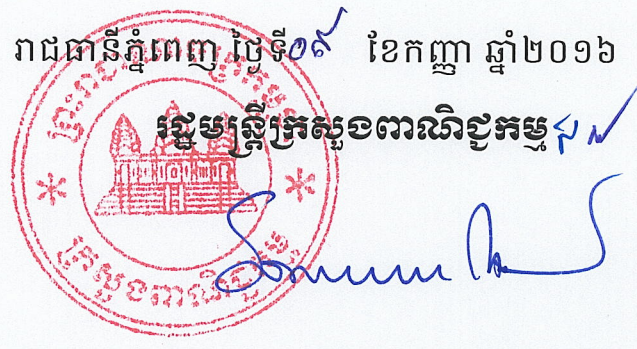 រាជធានីភ្នំពេញ ថ្ងៃទី០៩ ខែកញ្ញា ឆ្នាំ២០១៦
រដ្ឋមន្ត្រីក្រសួងពាណិជ្ជកម្ម
ក្រសួងពាណិជ្ជកម្ម